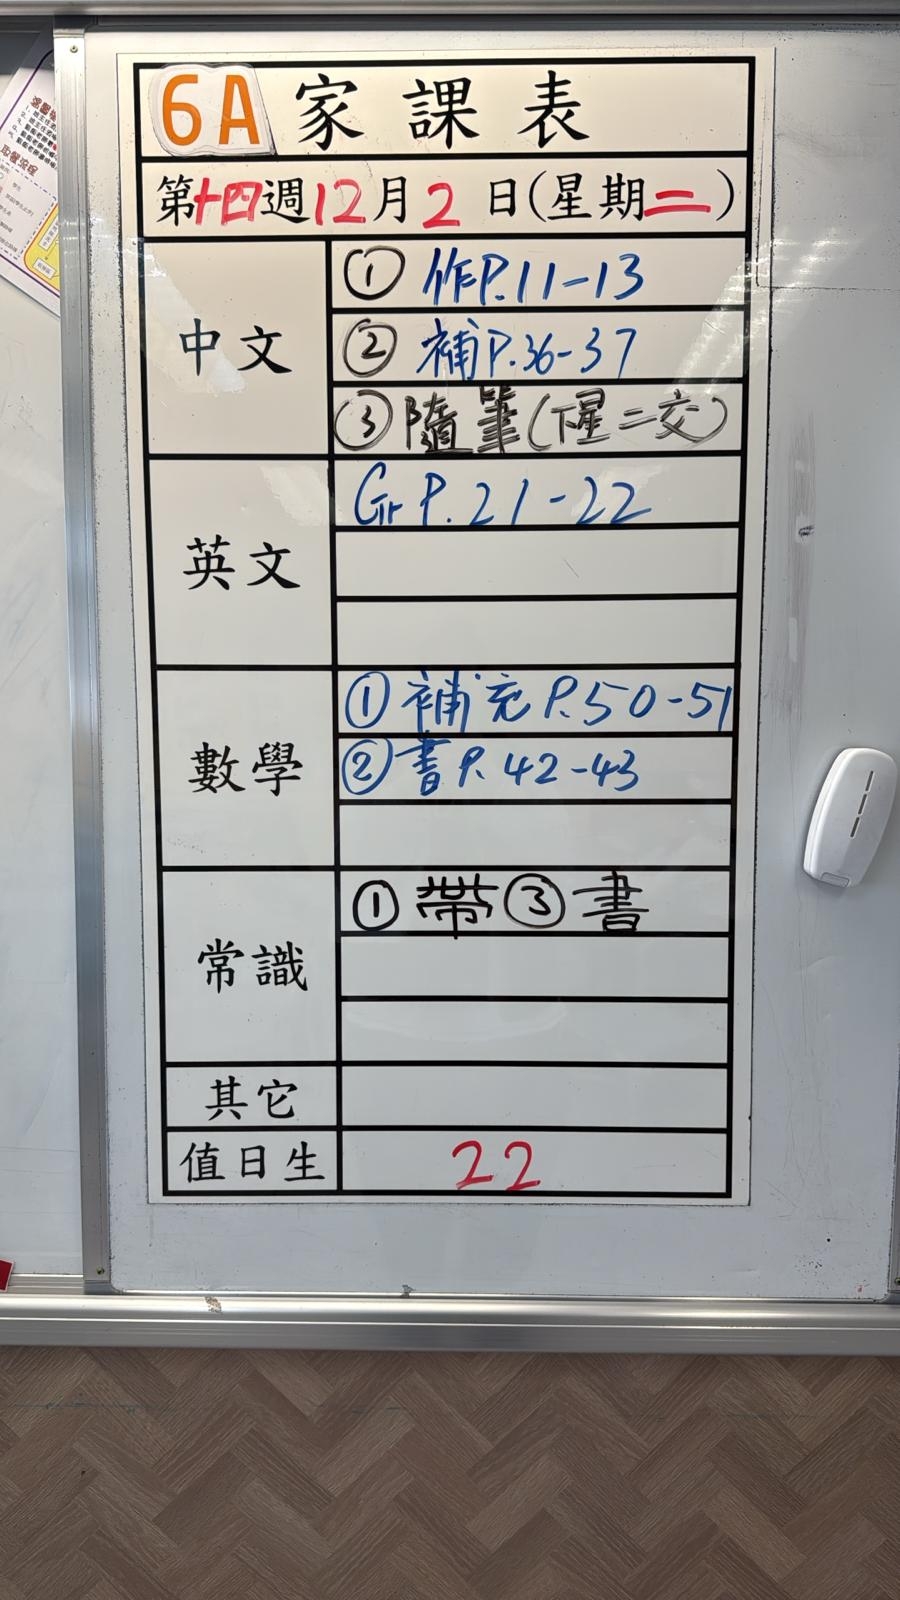 6A 家課表
第十四週12月2日(星期二)
中文
① 作P.11-13
② 補P.36-37
③ 隨筆(下星二交)
英文
Gr P.21-22
數學
① 補充 P.50-51
② 書 P.42-43
常識
① 帶③書
其它
值日生 22